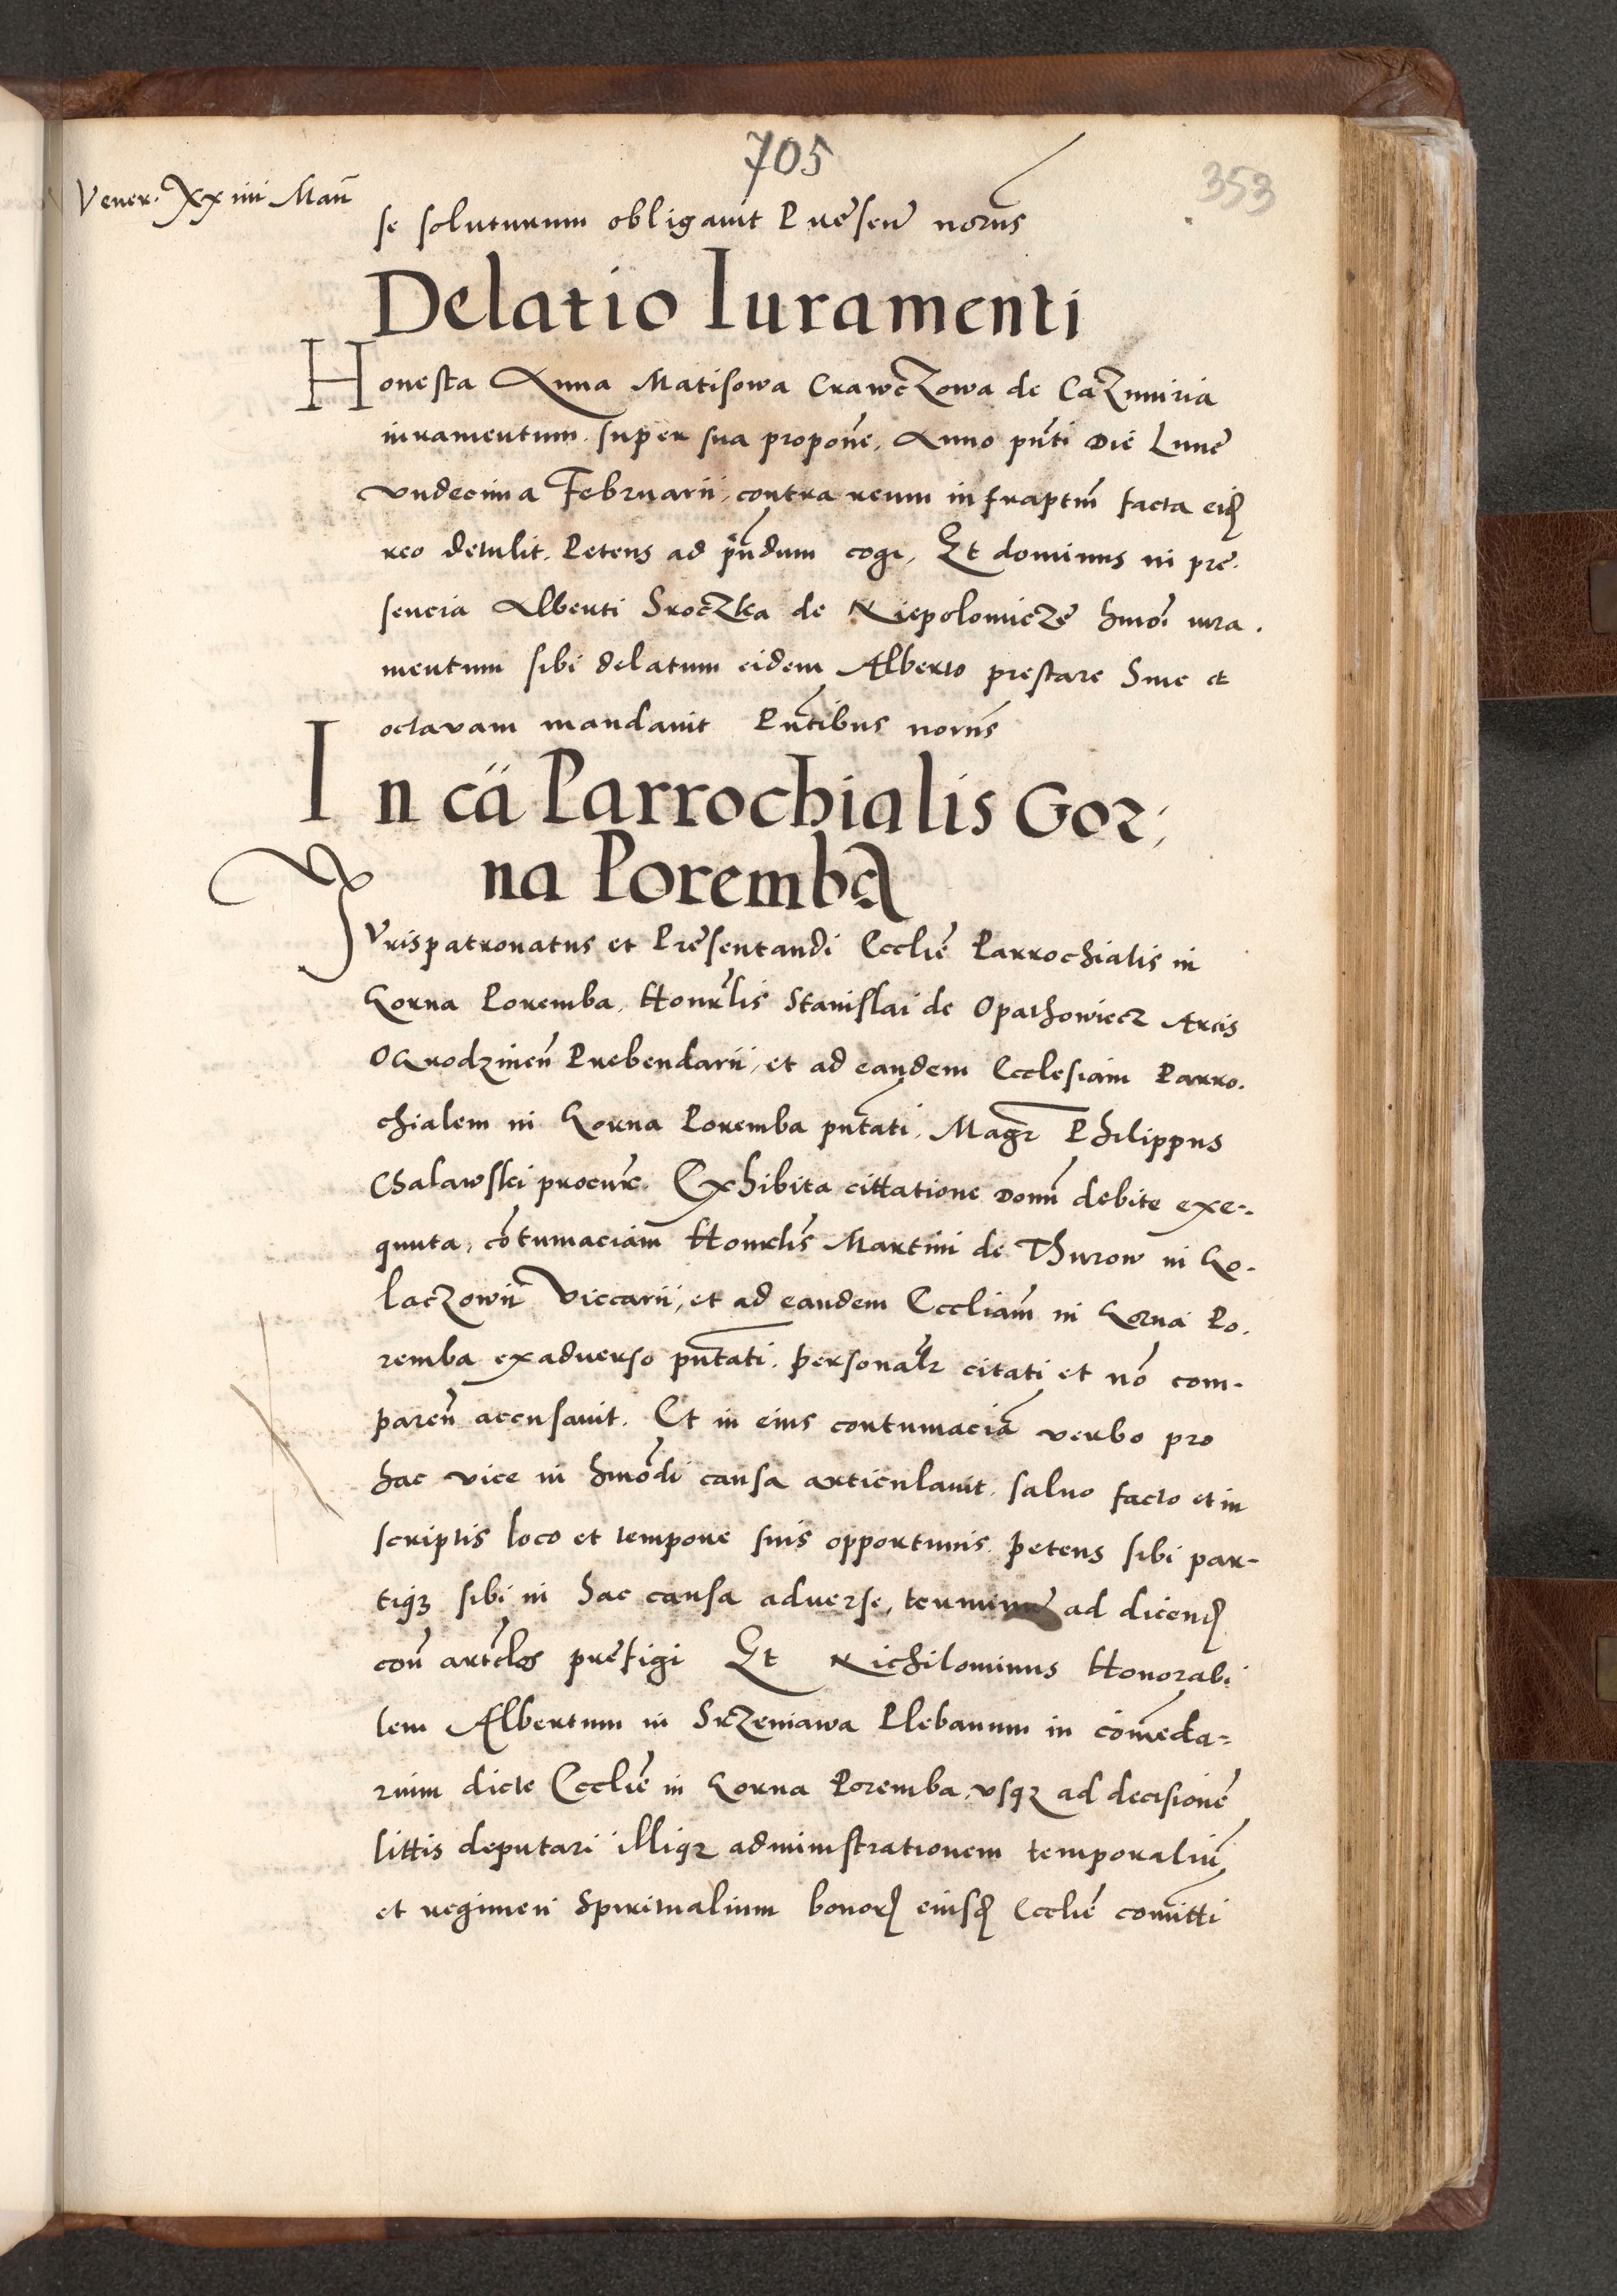 705
353
Vener. XXiiii Maii
se soluturum obligavit Presen̄ notar̄s
Delatio Iuramenti
Honesta Anna Matisowa CrawcZowa de CaZimiria
iuramentum super sua proponē, Anno pn̄ti Die Lune
vndecima Februarii, contra reum infrap̄tm̄ facta eid
reo detulit. Petens ad pn̄dum cogi, Et dominus in pre-
sencia Alberti SroczKa de Niepolomicze hmōi iura-
mentum sibi delatum eidem Alberto prestare Sine et
octavam mandavit Pn̄tibus nots
In cā Parrochialis Gor,
na Poremba
Iurispatronatus et Presentandi Ecclīe Parrochialis in
Gorna Poremba, Honr̄lis Stanislai de Opathowiecz Arcis
OGrodzinen̄ Prebendarii, et ad eandem Ecclesiam Parro-
chialem in Gorna Poremba pn̄tati, Magr̄ Philippus
Chalawski procur̄. Exhibita cittatione Domī debite exe-
quuta, cōtumaciam Honrl̄is Martini de Thurow in Go-
laczowii Viccarii, et ad eandem Eccliam̄ in Gorna Po-
remba exadverso pn̄tati, personalr̄ citati et nō com-
paren̄ accusavit. Et in eius contumaciā verbo pro
hac vice in hmōdi causa articulavit, salvo facto et in
scriptis loco et tempore suis opportunis. Petens sibi par-
tiqꝫ sibi in hac causa adverse, terminū ad dicend
con̄ artc̄los prefigi Et Nichilominus Honorabi
lem Albertum in Srzeniawa Plebanum in comēda-
rium dicte Ecclīe in Gorna Poremba, vsqꝫ ad decisionē
littis deputari illiqꝫ administrationem temporaliū
et regimen Spiritualium bonor eiusd Ecclīe comītti